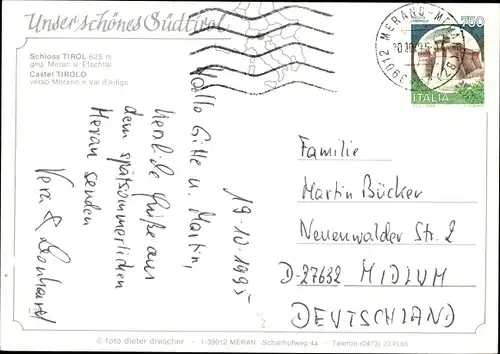 Unser schönes Südtirol
Schloss TIROL 625 m
geg. Meran u. Etschtal
Castel TIROLO
verso Merano e Val d'Adige
39012 MERANO-MERAN
750
ITALIA
Hallo Gitte u. Martin,
herzliche Grüße aus
dem spätsommerlichen
Meran senden
Vera & Leonhard
19-10-1995
Familie
Martin Bücker
Neuenwalder Str. 2
D-27632 MIDLUM
DEUTSCHLAND
© foto dieter drescher · I-39012 MERAN Schallhofweg 4a · Telefon (0473) 234566